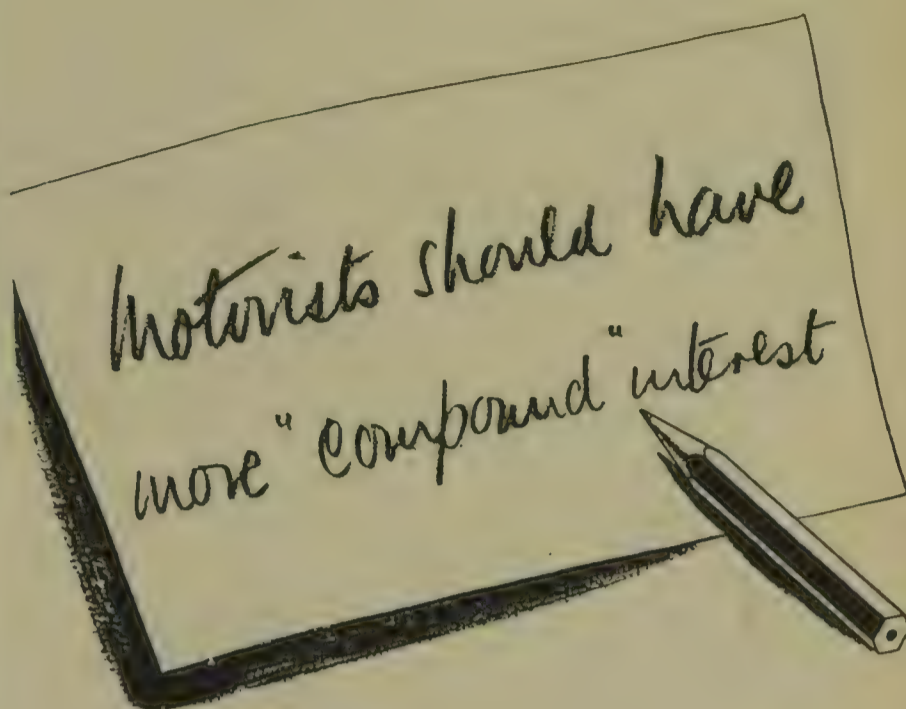 Motorists should have
more "compound" interest